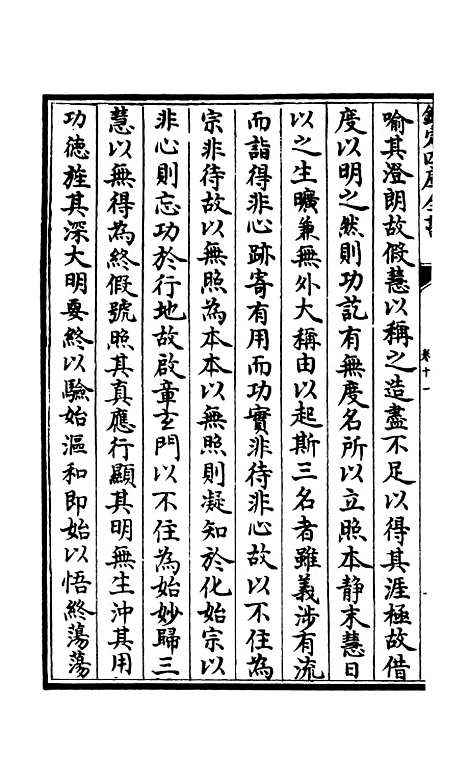 欽定四庫全書
卷十一
喻其澄朗故假慧以稱之造盡不足以得其涯極故借
度以明之然則功託有無度名所以立照本静末慧日
以之生曠兼無外大稱由以起斯三名者雖義涉有流
而詣得非心跡寄有用而功實非待非心故以不住為
宗非待故以無照為本本以無照則凝知於化始宗以
非心則忘功於行地故啟章玄門以不住為始妙歸三
慧以無得為終假號照其真應行顯其明無生沖其用
功徳旌其深大明要終以驗始漚和即始以悟終蕩蕩